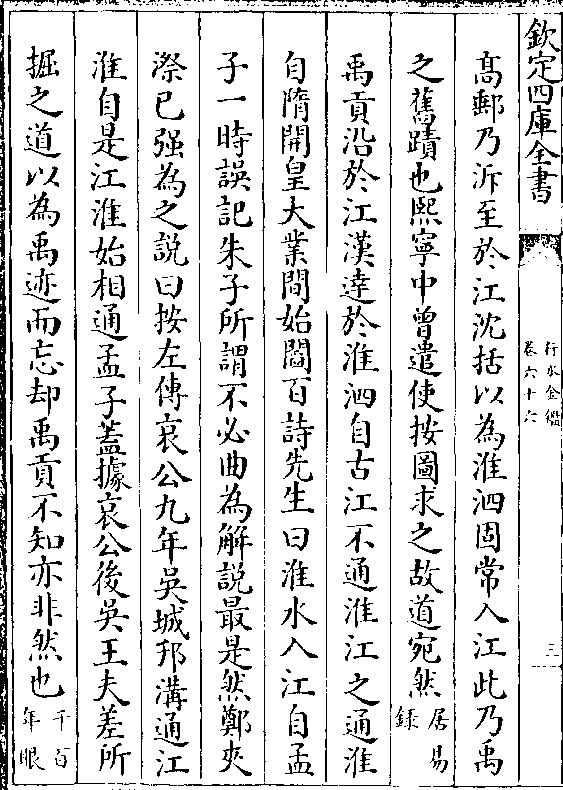 欽定四庫全書
行水金鑑
卷六十六
三
髙郵乃泝至於江沈括以為淮泗固常入江此乃禹
之舊蹟也熙寧中曾遣使按圖求之故道宛然居易
録
禹貢沿於江漢達於淮泗自古江不通淮江之通淮
自隋開皇大業間始閻百詩先生曰淮水入江自孟
子一時誤記朱子所謂不必曲為解説最是然鄭夾
漈已强為之説曰按左傳哀公九年吳城邗溝通江
淮自是江淮始相通孟子蓋據哀公後吳王夫差所
掘之道以為禹迹而忘却禹貢不知亦非然也千百
年眼